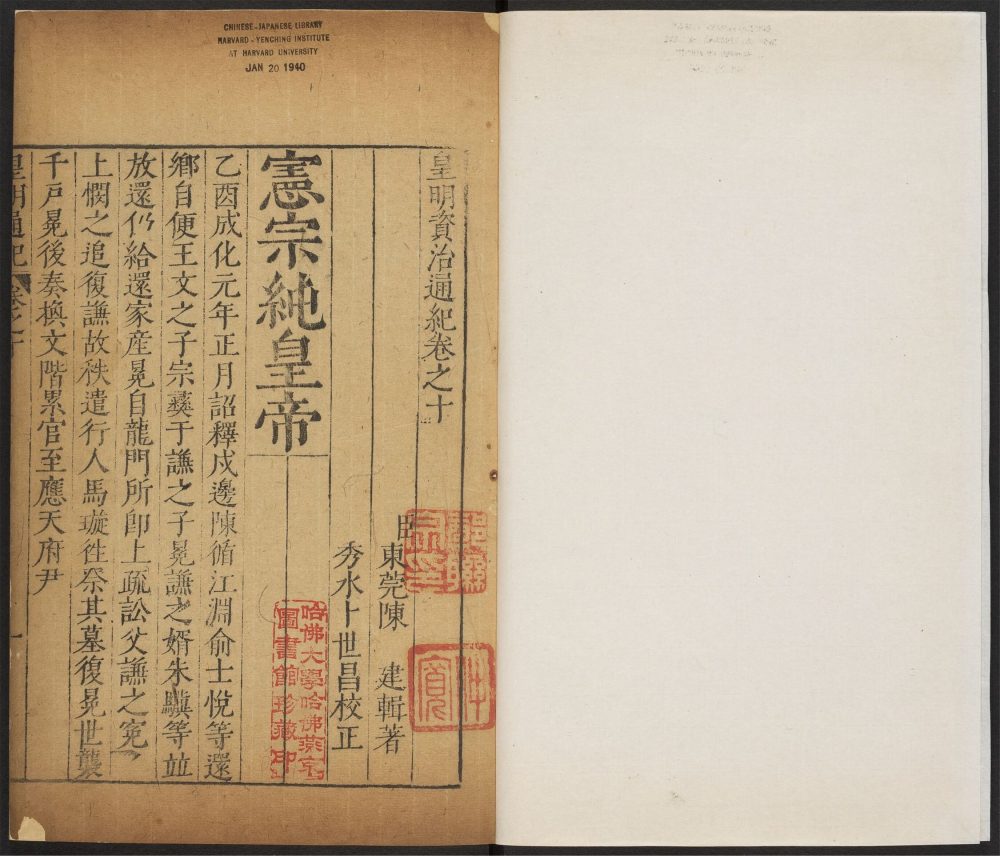 CHINESE-JAPANESE LIBRARY
HARVARD-YENCHING INSTITUTE
AT HARVARD UNIVERSITY
JAN 20 1940
皇明資治通紀卷之十
臣東莞陳 建輯著
秀水卜世昌校正
憲宗純皇帝
乙酉成化元年正月詔釋戍邊陳循江淵俞士悅等還
鄉自便王文之子宗彞于謙之子冕謙之婿朱驥等並
放還仍給還家産冕自龍門所卽上疏訟父謙之寃
上憫之追復謙故秩遣行人馬璇徃祭其墓復冕世襲
千戸冕後奏換文階累官至應天府尹
皇明通紀 卷之十 一
哈佛大學哈佛燕京
圖書館珍藏印